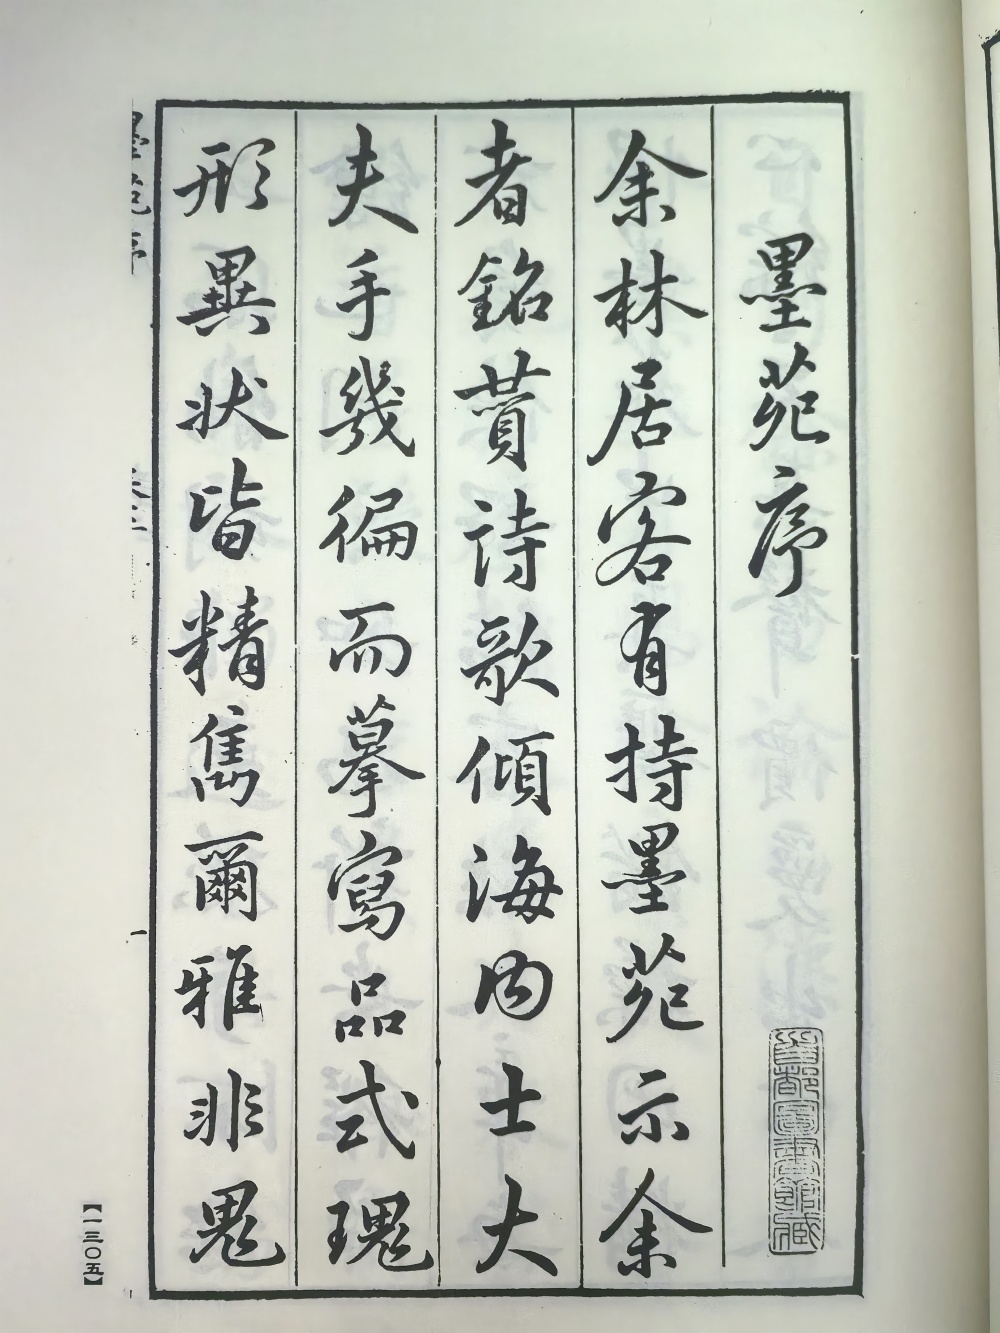 墨苑序
余林居客有持墨苑示余
者銘贊詩歌傾海內士大
夫手幾徧而摹寫品式瑰
形異狀皆精雋爾雅非鬼
首都圖書館藏
墨苑序
卷二
一
【一三〇五】